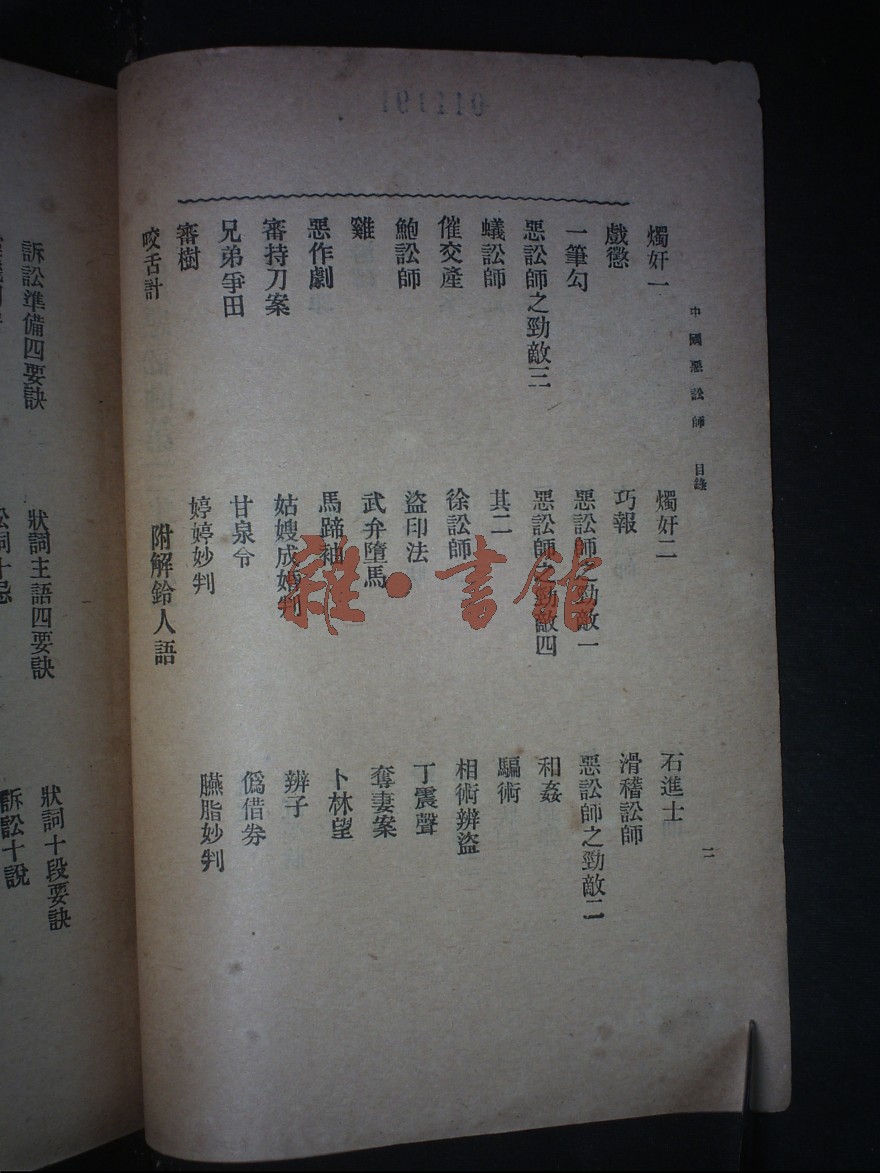 中國惡訟師 目錄 二
燭奸一 燭奸二 石進士
戲懲 巧報 滑稽訟師
一筆勾 惡訟師之勁敵一 惡訟師之勁敵二
惡訟師之勁敵三 惡訟師之勁敵四 和姦
蟻訟師 其二 騙術
催交產 徐訟師 相術辨盜
鮑訟師 盜印法 丁震聲
雞 武弁墮馬 奪妻案
惡作劇 馬蹄袖 卜林望
審持刀案 姑嫂成婚判 辨子
兄弟爭田 甘泉令 僞借券
審樹 婷婷妙判 臙脂妙判
咬舌計 附解鈴人語
訴訟準備四要訣 狀詞主語四要訣 狀詞十段要訣
訴訟十說
011191
雜·書館